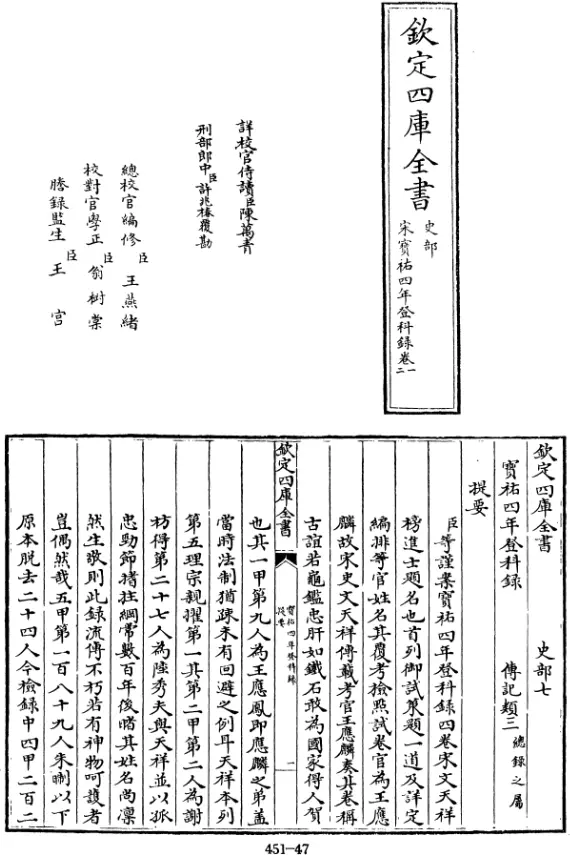 欽定四庫全書
史部
宋寶祐四年登科録卷一二
詳校官侍讀臣陳萬青
刑部郎中臣許兆椿覆勘
總校官編修臣王燕緒
校對官學正臣翁樹棠
謄録監生臣王宫
欽定四庫全書
史部七
寶祐四年登科録
傳記類三總録之屬
提要
臣等謹案寶祐四年登科録四卷宋文天祥
榜進士題名也首列御試策題一道及詳定
編排等官姓名其覆考檢點試卷官為王應
麟故宋史文天祥傳載考官王應麟奏其卷稱
古誼若龜鑑忠肝如鐵石敢為國家得人賀
欽定四庫全書
寶祐四年登科録
提要
一
也其一甲第九人為王應鳳即應麟之弟蓋
當時法制猶疎未有回避之例耳天祥本列
第五理宗親擢第一其第二甲第二人為謝
枋得第二十七人為陸秀夫與天祥並以孤
忠勁節搘拄綱常數百年後睹其姓名尚凛
然生敬則此録流傳不朽若有神物呵護者
豈偶然哉五甲第一百八十九人朱㬇以下
原本脱去二十四人今檢録中四甲二百二
451-47